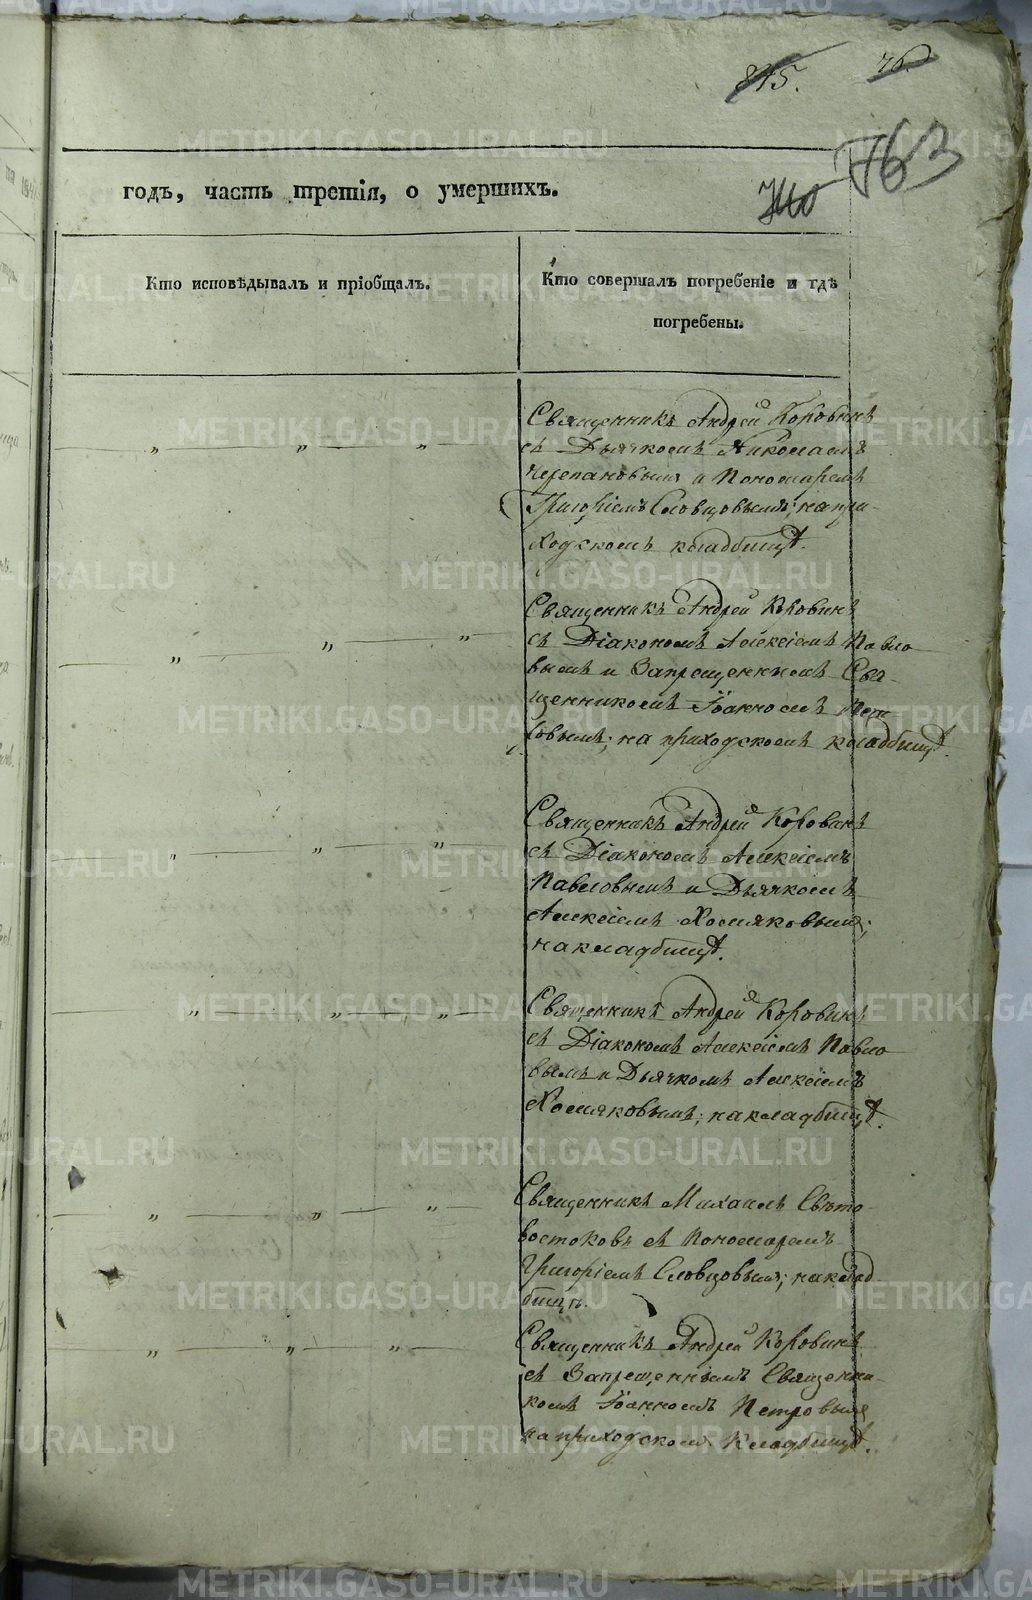 845.
76
740
763
годъ, часть третія, о умершихъ.
Кто исповѣдывалъ и пріобщалъ.
Кто совершалъ погребеніе и гдѣ
погребены.
Священникъ Андрей Коровинъ
съ Дьячкомъ Николаемъ
Черепановымъ и Пономаремъ
Григоріемъ Словцовымъ; на при-
ходскомъ кладбищѣ.
Священникъ Андрей Коровинъ
съ Діакономъ Алексіемъ Павло
вымъ и Запрещеннымъ Свя-
щенникомъ Іоанномъ Пет
ровымъ; на приходскомъ кладбищѣ.
Священникъ Андрей Коровинъ
съ Діакономъ Алексіемъ
Павловымъ и Дьячкомъ
Алексіемъ Хомяковымъ;
на кладбищѣ.
Священникъ Андрей Коровинъ
съ Діакономъ Алексіемъ Павло
вымъ и Дьячкомъ Алексіемъ
Хомяковымъ; на кладбищѣ.
Священникъ Михаилъ Свѣто-
востоковъ съ Пономаремъ
Григоріемъ Словцовымъ; на клад-
бищѣ.
Священникъ Андрей Коровинъ
съ Запрещеннымъ Священни-
комъ Іоанномъ Петровымъ
на приходскомъ кладбищѣ.
METRIKI.GASO-URAL.RU